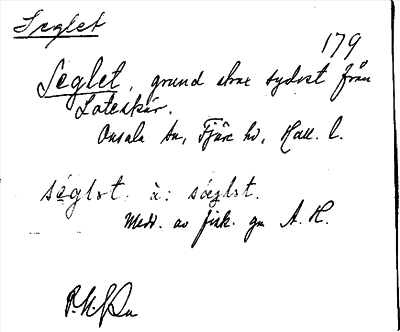 Seglet
179
Seglet, grund strax sydost från
Lateskär.
Onsala sn, Fjäre hd, Hall. l.
séglət. à: sæglət.
Medd. av fisk. gm A. H.